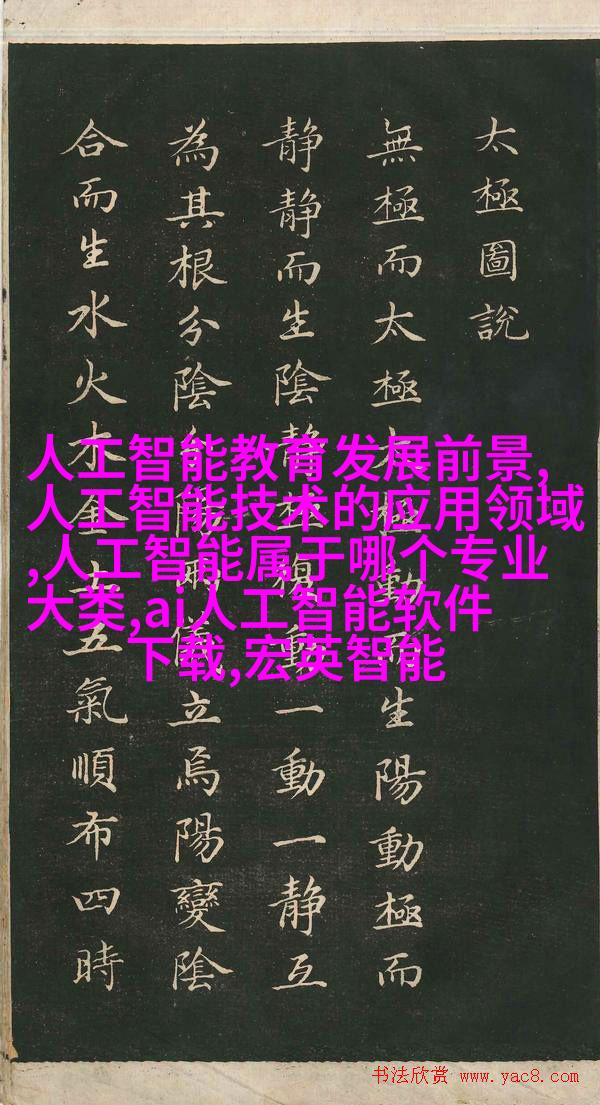 太極圖說
無極而太極太極動而生陽動極而
静静而生陰静極復動一動一静互
為其根分陰分陽兩儀立焉陽變陰
合而生水火木金土五氣順布四時
人工智能教育发展前景,
人工智能技术的应用领域
,人工智能属于哪个专业
大类,ai人工智能软件
下载,宏英智能
书法欣赏 www.yac8.com